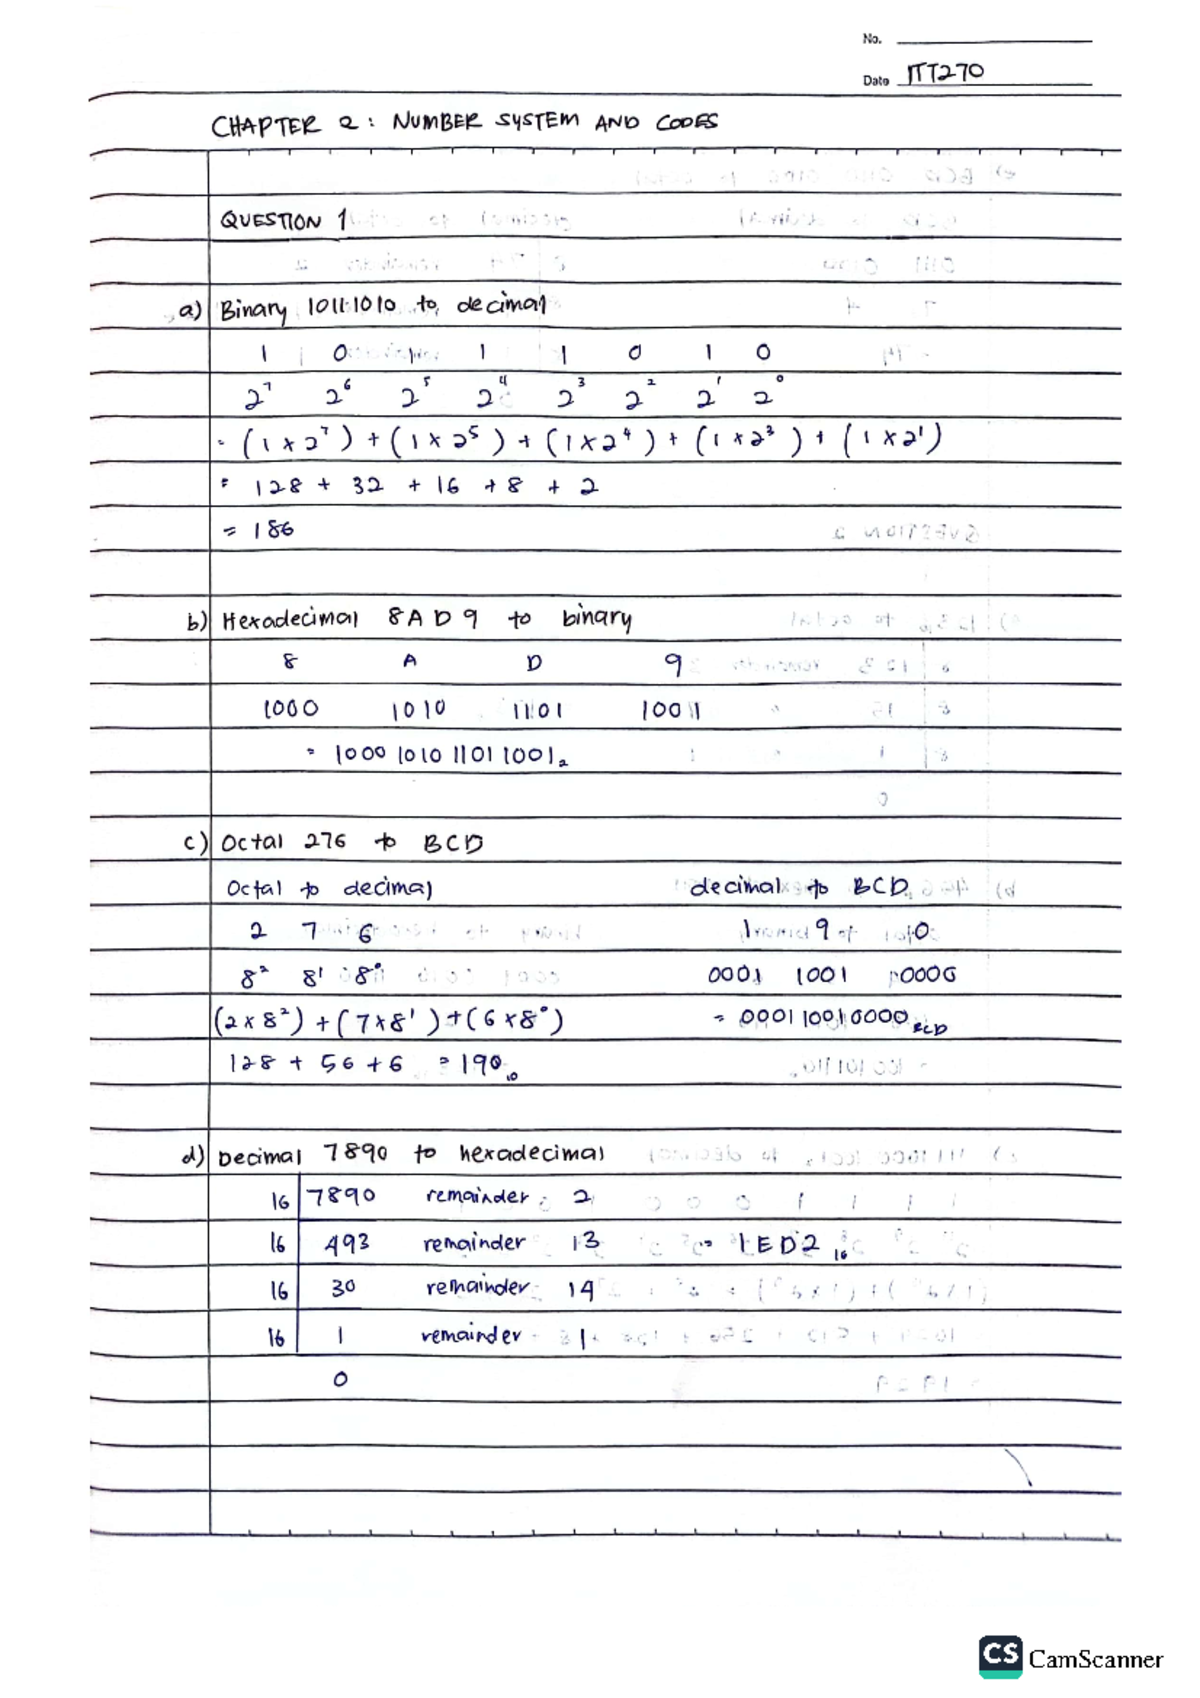 No.
Date ITT270
CHAPTER 2: NUMBER SYSTEM AND CODES
QUESTION 1
a) Binary 10111010 to decimal
1 0 1 1 1 0 1 0
2⁷ 2⁶ 2⁵ 2⁴ 2³ 2² 2¹ 2⁰
= (1 × 2⁷) + (1 × 2⁵) + (1 × 2⁴) + (1 × 2³) + (1 × 2¹)
= 128 + 32 + 16 + 8 + 2
= 186
b) Hexadecimal 8AD9 to binary
8 A D 9
1000 1010 1101 1001
= 1000 1010 1101 1001₂
c) Octal 276 to BCD
Octal to decimal decimal to BCD
2 7 6 1 9 0
8² 8¹ 8⁰ 0001 1001 0000
(2 × 8²) + (7 × 8¹) + (6 × 8⁰) = 000110010000 BCD
128 + 56 + 6 = 190₁₀
d) Decimal 7890 to hexadecimal
16 7890 remainder 2
16 493 remainder 13 = 1ED2₁₆
16 30 remainder 14
16 1 remainder 1
0
CS CamScanner